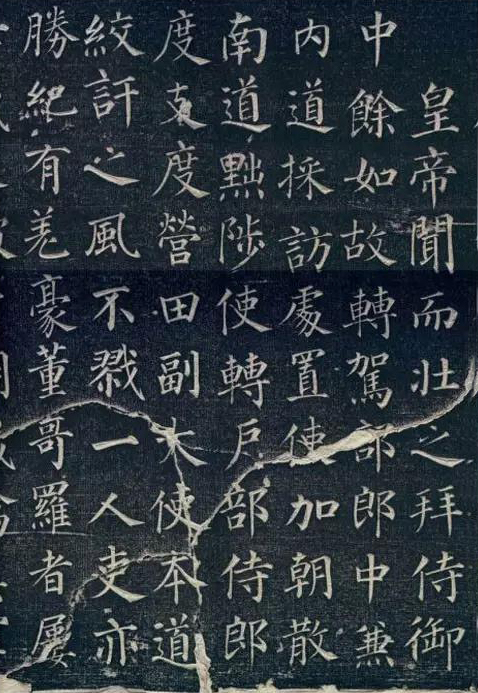 皇帝聞而壯之拜侍御
中餘如故轉駕部郎中兼
內道採訪處置使加朝散
南道黜陟使轉戶部侍郎
度支度營田副大使本道
絞訐之風不戮一人吏亦
勝紀有羌豪董哥羅者屢